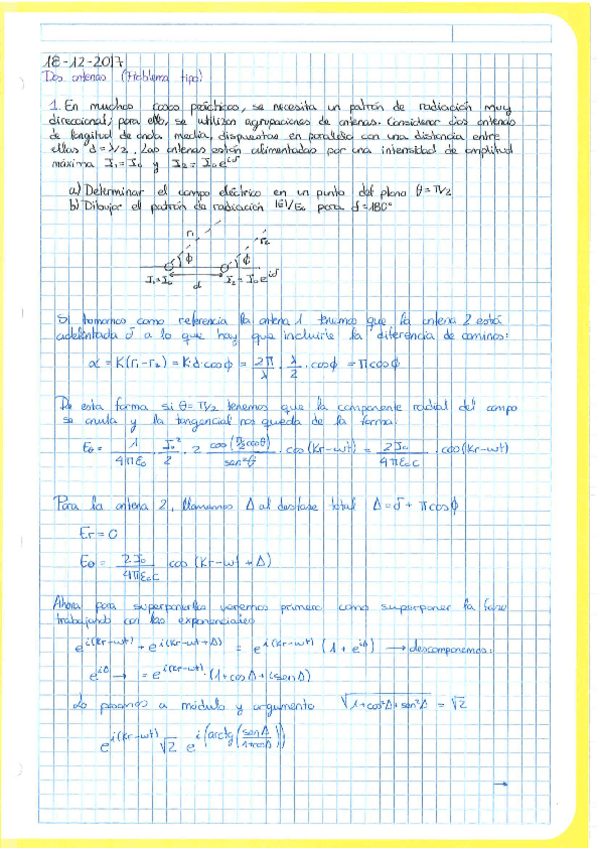 18-12-2017
Dos antenas (Problema tipo)
1. En muchos casos prácticos, se necesita un patrón de radiación muy
direccional; para ello, se utilizan agrupaciones de antenas. Considerar dos antenas
de longitud de onda media, dispuestas en paralelo con una distancia entre
ellas d=λ/2. Las antenas están alimentadas por una intensidad de amplitud
máxima I₁=I₀ y I₂=I₀e^{iδ}
a) Determinar el campo eléctrico en un punto del plano θ=π/2
b) Dibujar el patrón de radiación |E|/E₀ para δ=180°
r₁ r₂
ϕ ϕ
I₁=I₀ d I₂=I₀e^{iδ}
Si tomamos como referencia la antena 1 tenemos que la antena 2 está
adelantada δ a lo que hay que incluirle la diferencia de caminos:
α = K(r₁-r₂) = K·d cosϕ = 2π/λ · λ/2 · cosϕ = πcosϕ
De esta forma si θ=π/2 tenemos que la componente radial del campo
se anula y la tangencial nos queda de la forma:
Eθ = 1/4πε₀ · I₀²/2 · 2 cos(π/2 cosθ)/sen²θ · cos(Kr-ωt) = 2I₀/4πε₀c · cos(Kr-ωt)
Para la antena 2, llamamos Δ al desfase total Δ=δ+πcosϕ
Er=0
Eθ = 2I₀/4πε₀c cos(Kr-ωt+Δ)
Ahora para superponerlas veremos primero como superponer la fase
trabajando con las exponenciales
e^{i(Kr-ωt)} + e^{i(Kr-ωt+Δ)} = e^{i(Kr-ωt)} (1+e^{iΔ}) → descomponemos:
e^{iΔ} → = e^{i(Kr-ωt)}·(1+cosΔ+isenΔ)
Lo pasamos a módulo y argumento √(1+cos²Δ+sen²Δ) = √2
e^{i(Kr-ωt)} √2 e^{i(arctg(senΔ/1+cosΔ))}
→